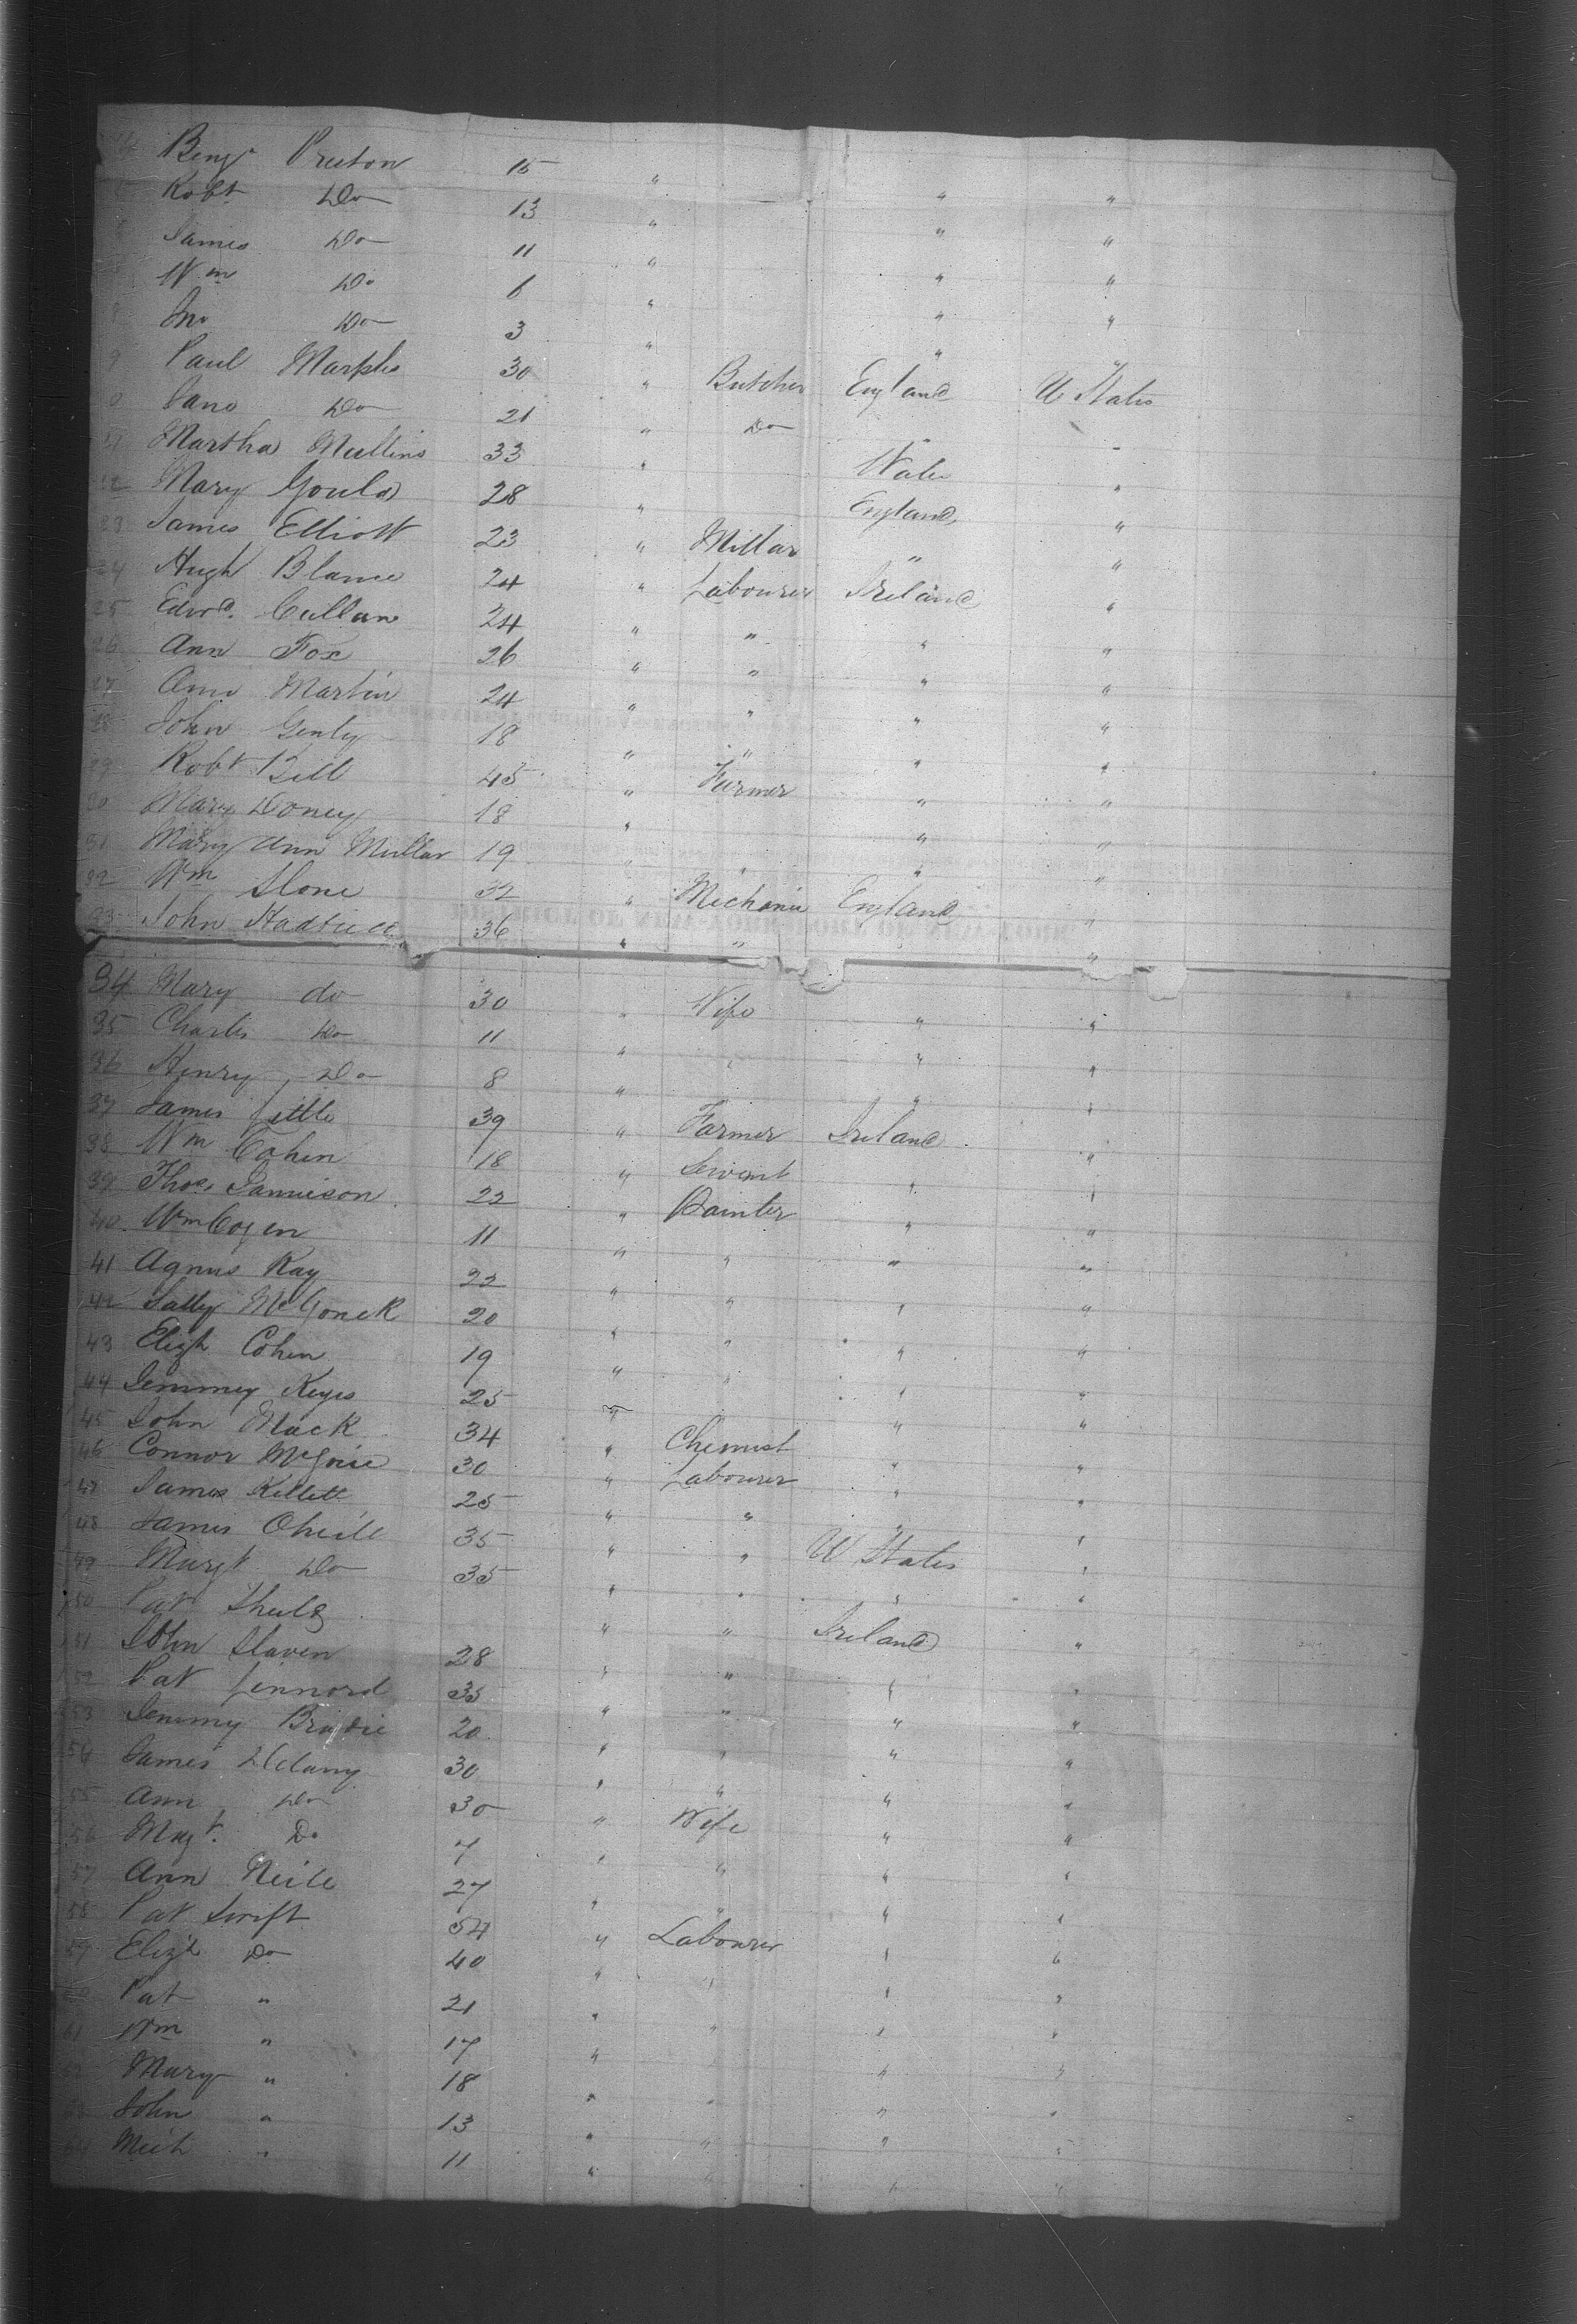 Benjn Preston 15 " " "
Robt Do 13 " " "
James Do 11 " " "
Wm Do 6 " " "
Jno Do 3 " " "
9 Paul Marples 30 " Butcher England U States
0 Jano Do 21 " Do " "
21 Martha Mullins 33 " Wales "
22 Mary Gould 28 " England "
23 James Elliott 23 " Millar " "
24 Hugh Blame 24 " Labourer Ireland "
25 Edwd. Cullan 24 " " " "
26 Ann Fox 26 " " " "
27 Ann Martin 24 " " " "
28 John Genty 18 " " " "
29 Robt Bill 45 " Farmer " "
30 Mary Doney 18 " " "
31 Mary Ann Mullar 19 " " " "
32 Wm Slone 32 " Mechanic England "
33 John 36 " " "
34 Mary do 30 " Wife " "
35 Charles Do 11 " " " "
36 Henry Do 8 " " "
37 James Little 39 " Farmer Ireland "
38 Wm Cohen 18 " Servant " "
39 Thos. Jamieson 22 " Painter " "
40 Wm Cogen 11 " " " "
41 Agnus Kay 22 " " " "
42 Sally McGonek 20 " " " "
43 Elizh Cohen 19 " " " "
44 Jemmey Keyes 25 " " "
45 John Mack 34 " Chemist " "
46 Connor McGuie 30 " Labourer " "
47 James Kellett 25 " " " "
48 James Oneill 35 " " U States "
49 Margt Do 35 " " " "
50 Pat " " Ireland "
51 John Slaven 28 " " " "
52 Pat Linnord 35 " " " "
53 Jemmy Bradie 20 " " " "
54 James Delany 30 " " " "
55 Ann Do 30 " Wife " "
56 Magt. Do 7 " " " "
57 Ann Neile 27 " " " "
58 Pat Swift 54 " Labourer " "
59 Elizh Do 40 " " " "
60 Pat " 21 " " " "
61 Wm " 17 " " " "
62 Mary " 18 " " " "
63 John " 13 " " " "
64 Mich " 11 " " " "